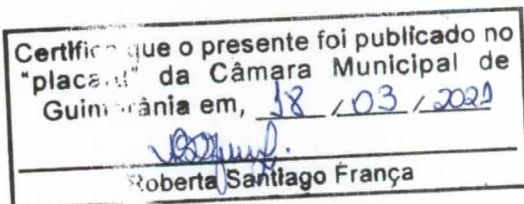 Certific que o presente foi publicado no
"placa" da Câmara Municipal de
Guimarânia em, 18 / 03 / 2021
Roberta Santiago França